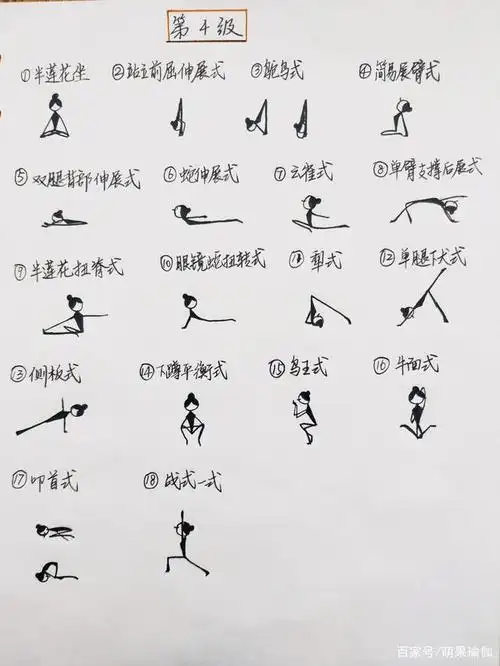 第4级
①半莲花坐 ②站立前屈伸展式 ③鸵鸟式 ④简易展臂式
⑤双腿背部伸展式 ⑥蛇伸展式 ⑦云雀式 ⑧单臂支撑后展式
⑨半莲花扭脊式 ⑩眼镜蛇扭转式 ⑪犁式 ⑫单腿下犬式
⑬侧板式 ⑭下蹲平衡式 ⑮鸟王式 ⑯牛面式
⑰叩首式 ⑱战式一式
百家号/萌果瑜伽